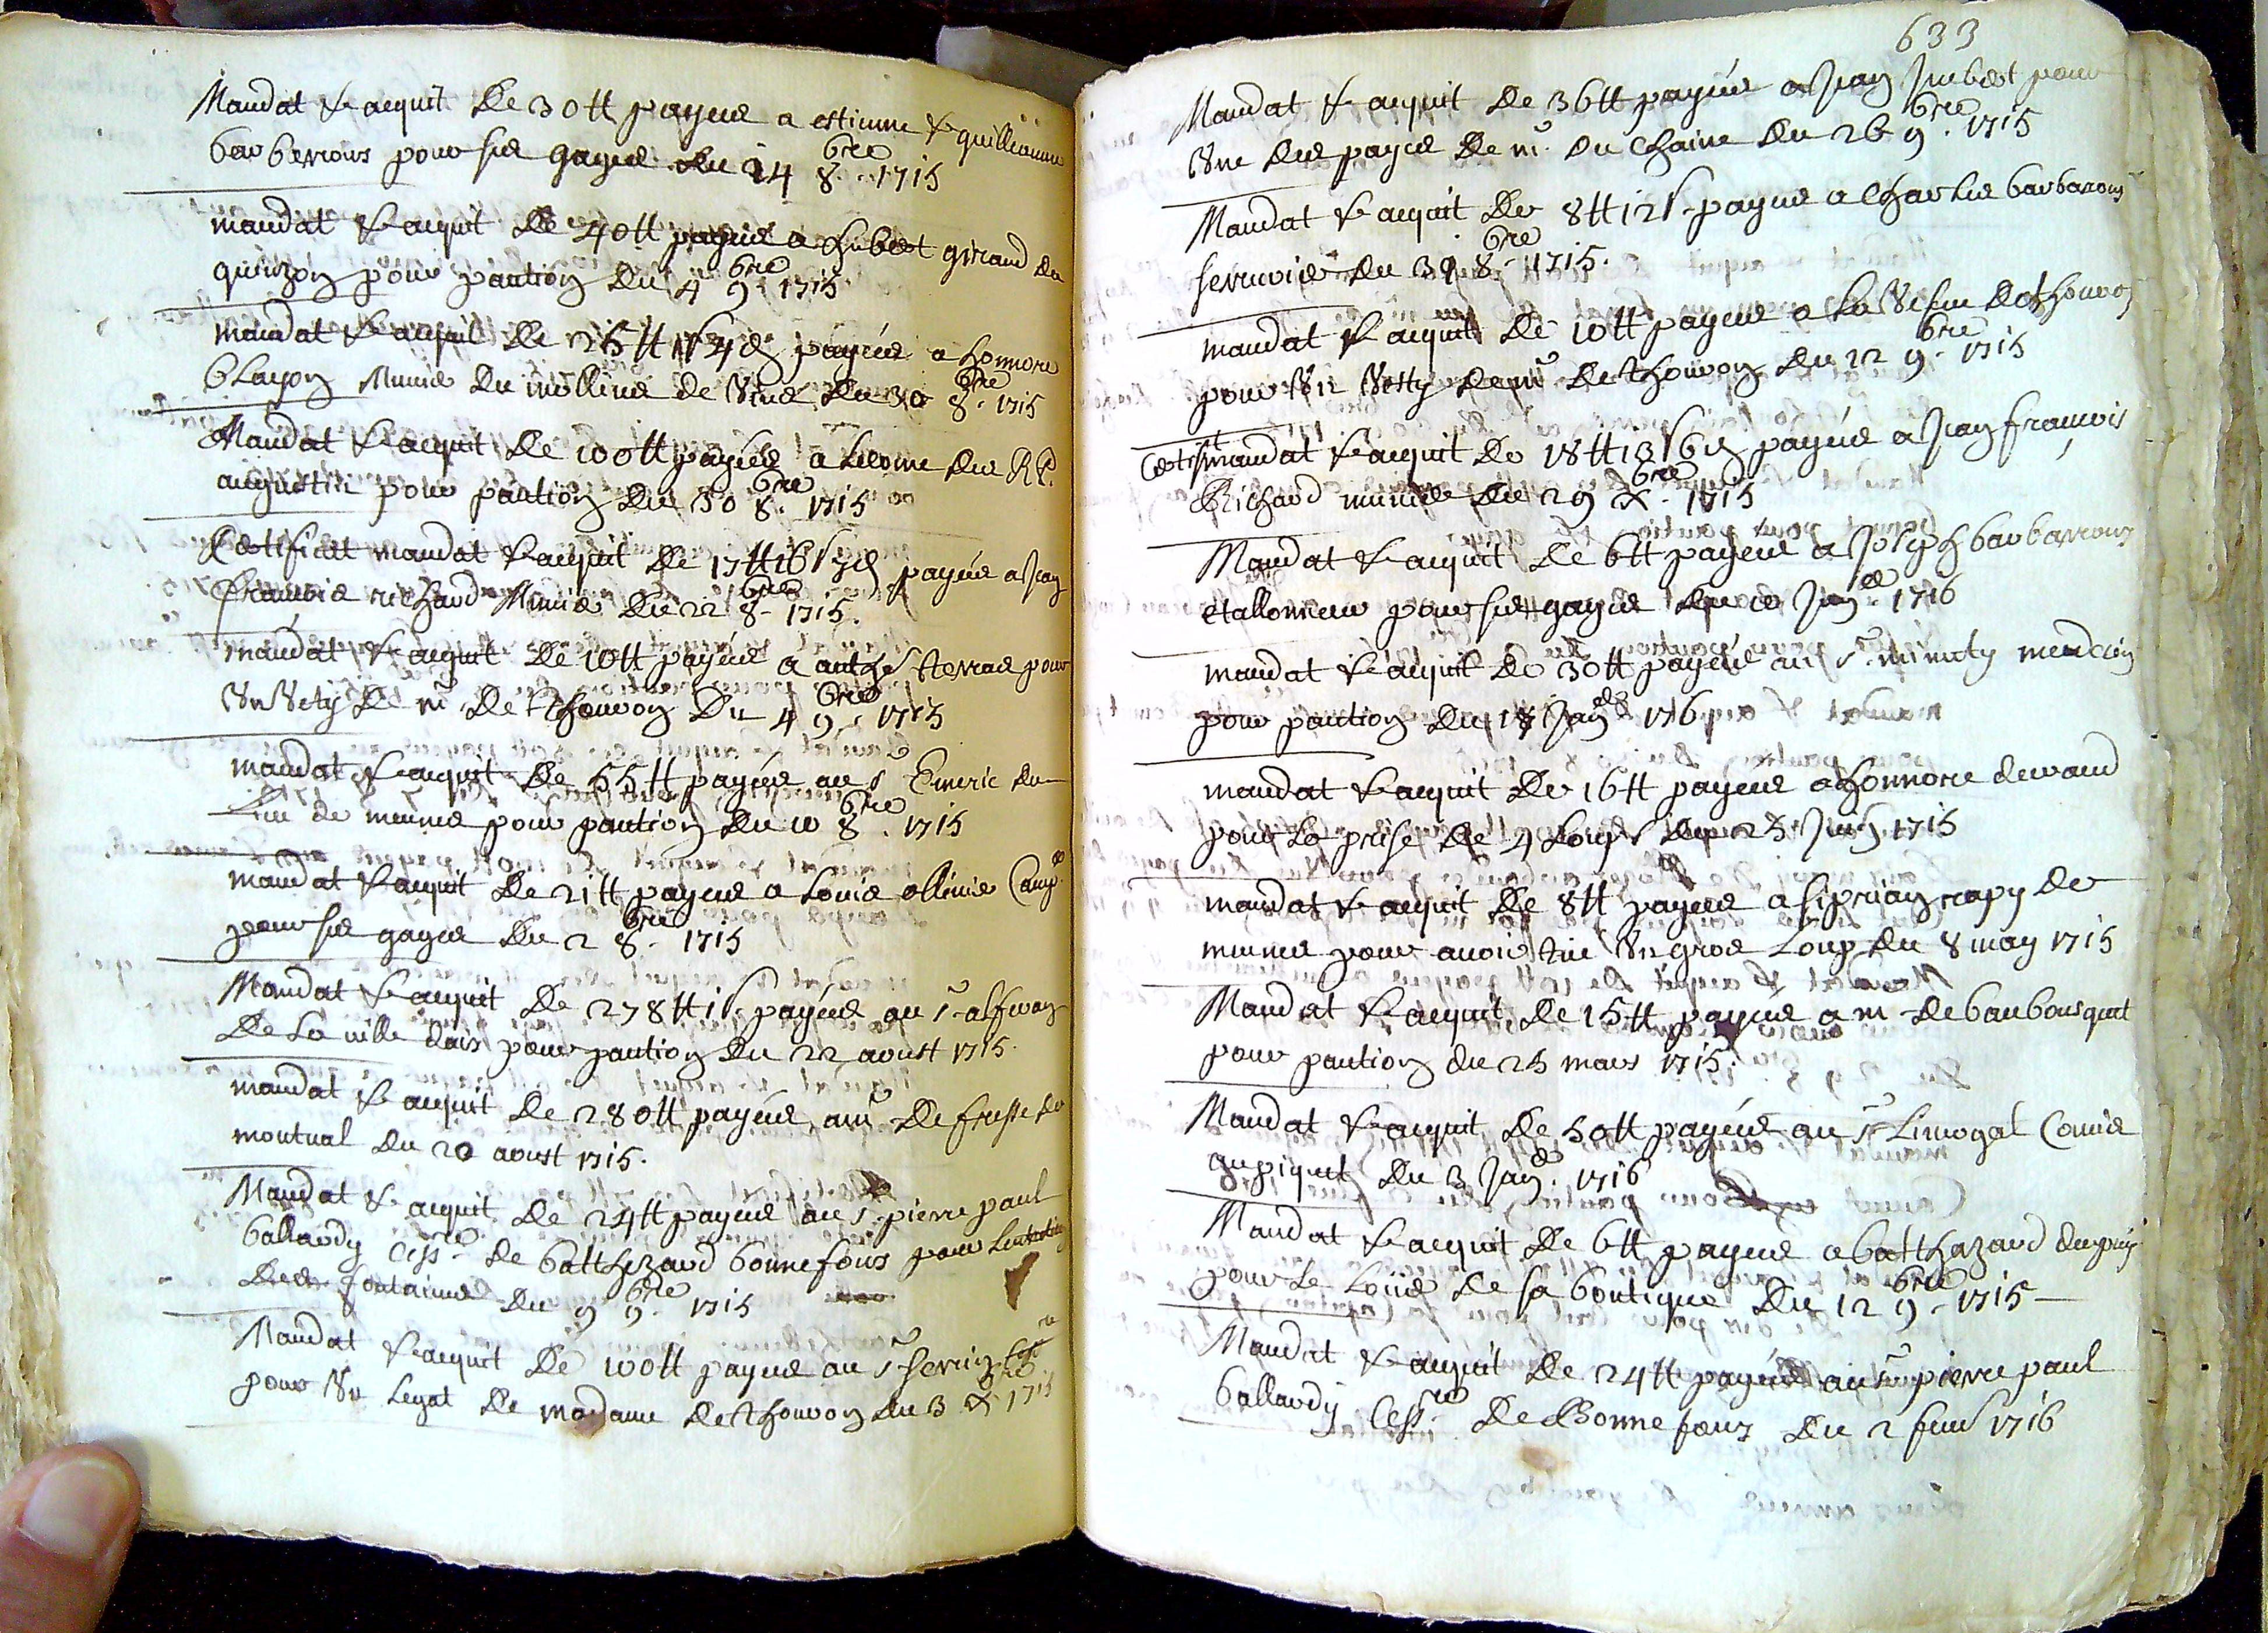 Mandat & acquit De 30 tt payées a estienne & guilleaume
barbarrous pour ses gages du 24 8.bre 1715
mandat & acquit De 40 tt payées a hubert giraud du
quinzon pour pantion Du 4 9.bre 1715
mandat & acquit De 25 tt 1 s 4 d payées a honnore
blayon Munie Du molline de Du 30 8.bre 1715
Mandat & acquit De 100 tt payées a des RP.
augustin pour pantion Du 30 8.bre 1715
Certificat mandat & acquit De 17 tt 16 s 3 d payées a Jean
francois richard Munie Du 22 8.bre 1715.
mandat & acquit De 10 tt payées a pour
Un De mr De Thouron Du 4 9.bre 1715
mandat & acquit De 55 tt payées au s Emeric du
de mesme pour pantion Du 10 8.bre 1715
mandat & acquit De 21 tt payées a Louis ollivie Camp.
pour ses gages Du 2 8.bre 1715
Mandat & acquit De 278 tt 1 s. payées au sr
De la ville daix pour pantion Du 22 aoust 1715.
mandat & acquit De 280 tt payées a mr De
montval du 20 aoust 1715.
Mandat & acquit De 24 tt payées au s. pierre paul
ballardy Cess.re De balthezard bonnefous pour
Des fontaines Du 9 9.bre 1715
Mandat & acquit De 100 tt payées au sr
pour Un Legat De madame De Thouron du 3 X.bre 1715
633
Mandat & acquit De 36 tt payées a Jean Imbert pour
Une Des payes De mr. Du Chaine Du 26 9.bre 1715
Mandat & acquit De 8 tt 12 s. payées a Charles barbarous
serrurie Du 8.bre 1715.
mandat & acquit De 10 tt payées a La De Thouron
pour Un De mr De Thouron Du 22 9.bre 1715
Certif mandat & acquit De 18 tt 13 s 6 d payées a Jean francois
Richard munie Du 29 X.bre 1715
Mandat & acquit De 6 tt payées a Joseph barbarrous
etallonneur pour ses gages Du 10 Jan.er 1716
mandat & acquit De 30 tt payées au s. minuty medecin
pour pantion Du 18 Jan 1716
mandat & acquit De 16 tt payées a honnore
pour La prise De 4 Loups Du 25 Juin 1715
mandat & acquit De 8 tt payées a siprian rapy De
mesme pour avoir tue Un gros Loup Du 8 may 1715
Mandat & acquit De 15 tt payées a m De baubousquet
pour pantion du 25 mars 1715.
Mandat & acquit De 50 tt payées au sr Limogal Comis
au piquet Du 3 Jan.er 1716
Mandat & acquit De 6 tt payées a balthazard dupuy
pour Le De sa boutique Du 12 9.bre 1715
Mandat & acquit De 24 tt payées au sr pierre paul
ballardy Cess.re De Bonnefous Du 2 1716